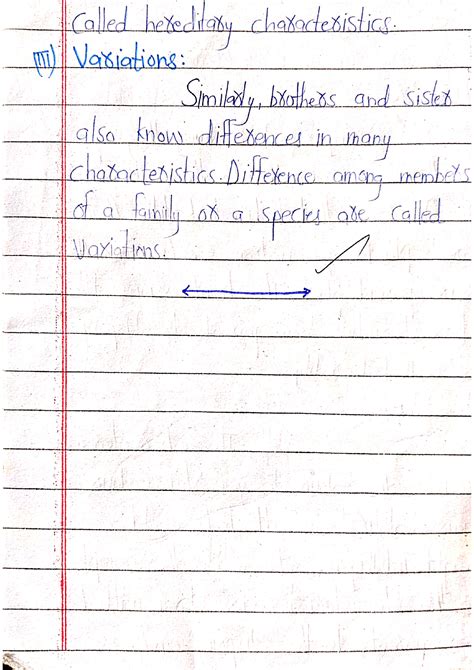 called hereditary characteristics.
(III) Variations:
Similarly, brothers and sister
also know differences in many
characteristics. Difference among members
of a family or a species are called
Variations.